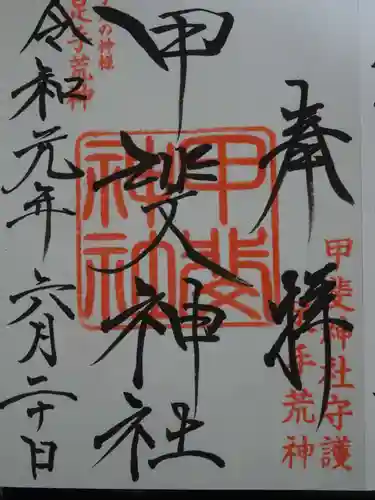 奉拝
甲斐神社守護
足手荒神
甲斐神社
甲斐神社
の神様
足手荒神
令和元年六月二十日